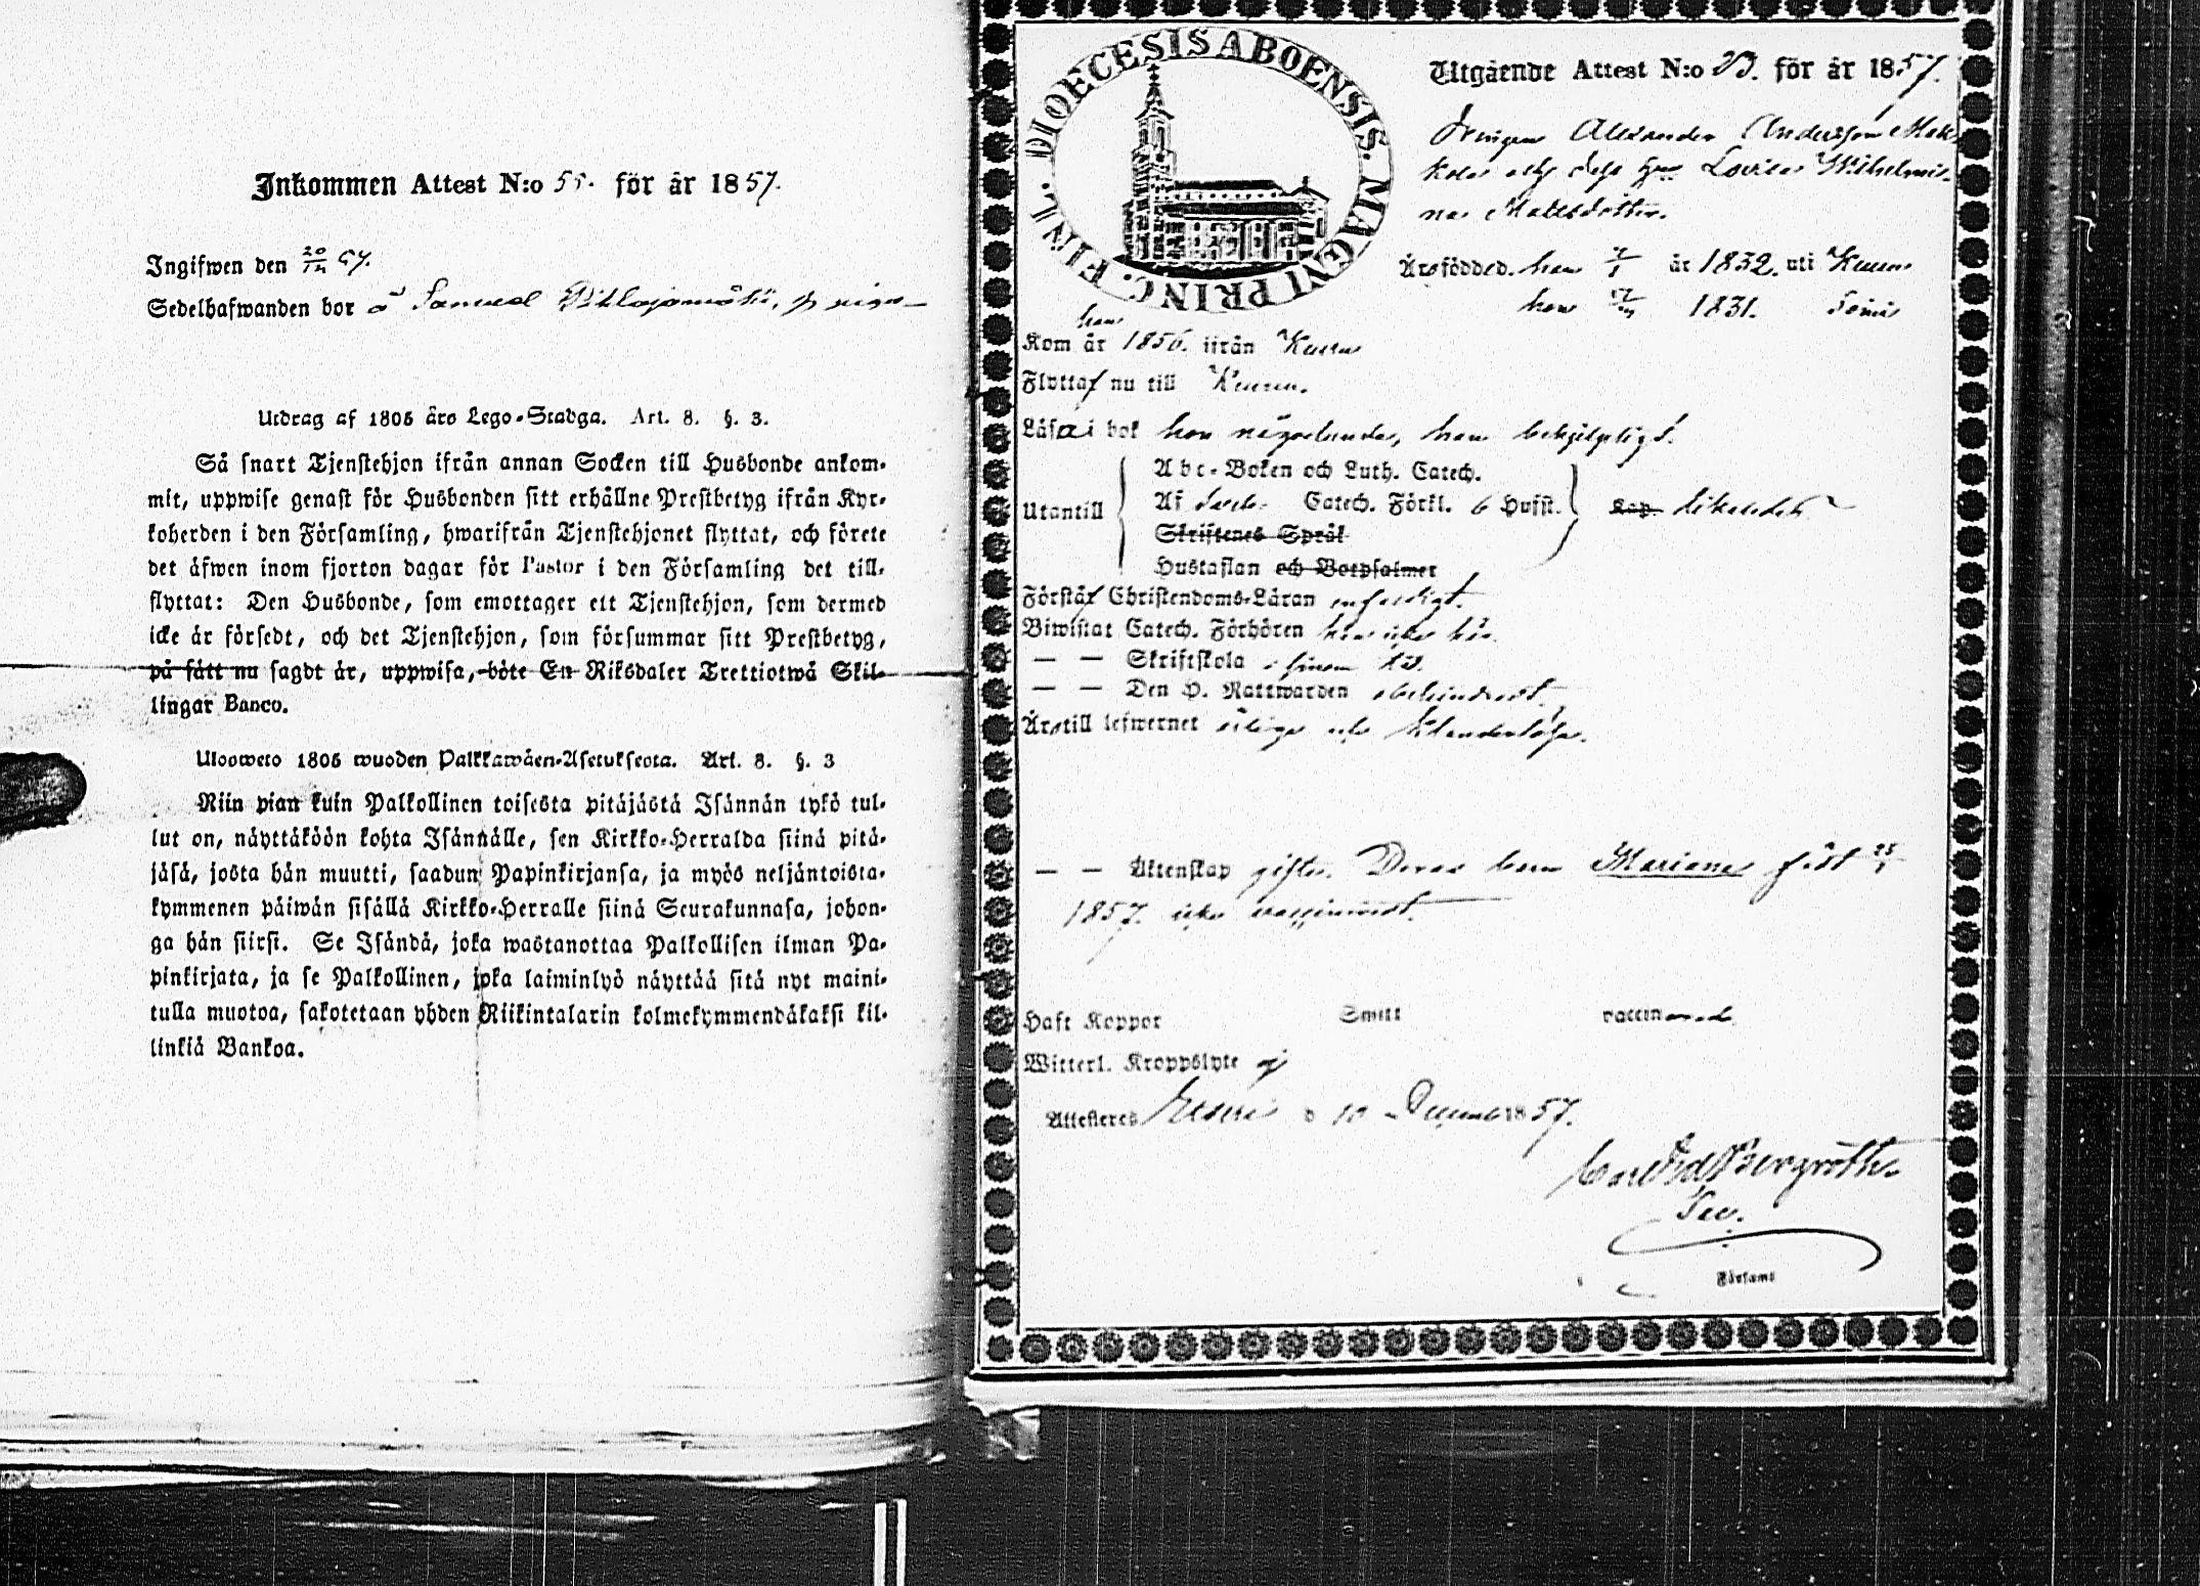 Inkommen Attest N:o 55. för år 1857.
Ingifwen den 20/12 57.
Sedelhafwanden bor å Samuel Pihlajamäki,
Utdrag af 1805 års Lego-Stadga. Art. 8. §. 3.
Så snart Tjenstehjon ifrån annan Socken till Husbonde ankom-
mit, uppwise genast för Husbonden sitt erhållne Prestbetyg ifrån Kyr-
koherden i den Församling, hwarifrån Tjenstehjonet flyttat, och förete
det äfwen inom fjorton dagar för Pastor i den Församling det till-
flyttat: Den Husbonde, som emottager ett Tjenstehjon, som dermed
icke är försedt, och det Tjenstehjon, som försummar sitt Prestbetyg,
på sätt nu sagdt är, uppwisa, böte En Riksdaler Trettiotwå Skil-
lingar Banco.
Uloosweto 1805 wuoden Palkkawäen-Asetuksesta. Art. 8. §. 3
Niin pian kuin Palkollinen toisesta pitäjästä Isännän tykö tul-
lut on, näyttäköön kohta Isännälle, sen Kirkko-Herralda siinä pitä-
jäsä, josta hän muutti, saadun Papinkirjansa, ja myös neljäntoista-
kymmenen päiwän sisällä Kirkko-Herralle siinä Seurakunnasa, johon-
ga hän siirsi. Se Isändä, joka wastanottaa Palkollisen ilman Pa-
pinkirjata, ja se Palkollinen, joka laiminlyö näyttää sitä nyt maini-
tulla muotoa, sakotetaan yhden Riikintalarin kolmekymmendäkaksi kil-
linkiä Bankoa.
DIOECESIS ABOENSIS. MAGNI PRINC. FINL.
Utgående Attest N:o 23. för år 1857.
Drengen Alexander Andersson
och dess hu Lovisa Wilhelmi-
na Mattsdotter.
Äro födde d. han år 1832. uti
hon 1831.
han
Kom år 1856. ifrån
Flytta nu till
Läsa i bok hon någorlunda, han behjelpligt.
Abc-Boken och Luth. Catech.
Utantill Af Catech. Förkl. 6 Hufst. Kap.
Skriftenes Språk
Hustaflan och Botpsalmer
Förstå Christendoms-Läran
Biwistat Catech. Förhören
— — Skriftskola
— — Den H. Nattwarden obehindradt.
Äro till lefwernet ärliga och
— — Äktenskap gifta. Deras barn Mariana född
1857. icke vaccinerad.
Haft Koppor Smitt vaccinerad
Witterl. Kroppslyte ej
Attesteras d 10 December 1857.
Carl Fred Bergroth.
Församl